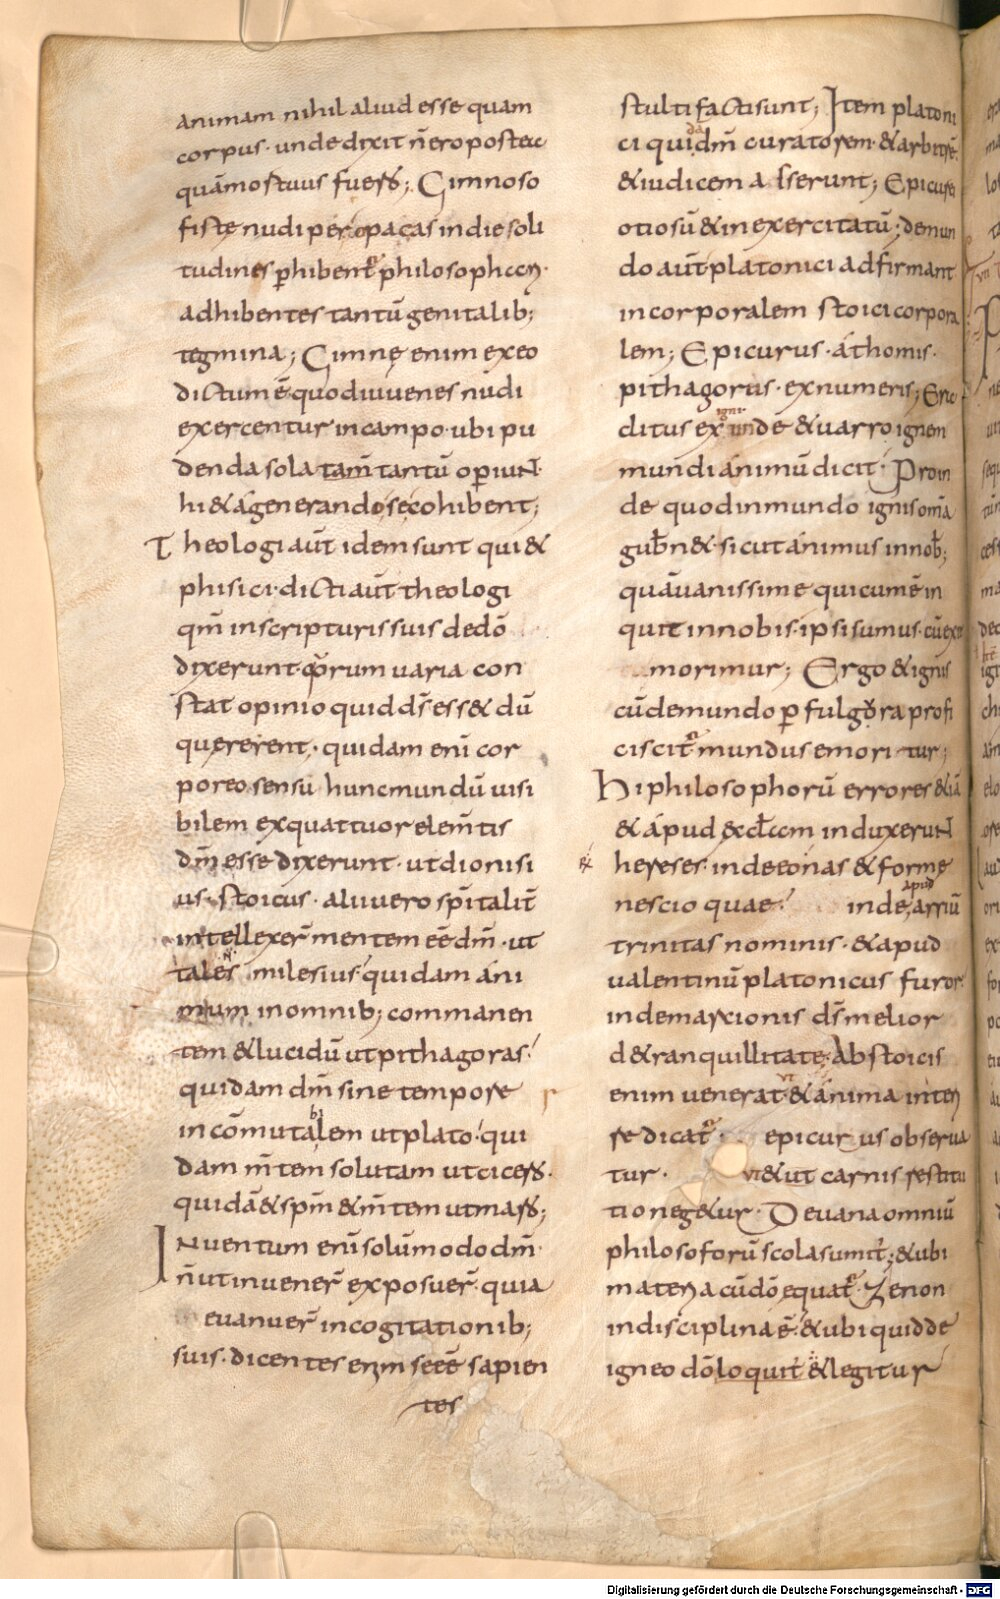 animam nihil aliud esse quam
corpus· unde dixit n̄ ero postea
quam mortuus fuero; Gimnoso
fistę nudi per opacas indie soli
tudines ꝑhibent̃ philosophan·
adhibentes tantū genitalib;
tegmina; Gimnę enim exeo
dictum ē quod iuuenes nudi
exercentur in campo· ubi pu
denda sola tam̄ tantū operiuN
hi & á generando sé cohibent;
Theologi aūt idem sunt qui &
phisici· dicti aūt theologi
qm̄ inscripturis suis de dō
dixerunt· quorum uaria con
stat opinio quid d̄s ess& dū
quęrerent· quidam enī cor
poreo sensu hunc mundū uisi
bilem ex quattuor elem̄tis
dm̄ esse dixerunt· ut dionisi
us· stoicus· alii uero sp̄italit̄
intellexer̄ mentem eē dm̄· ut
tales milesius· quidam ani
mum in omnib; commanen
tem & lucidū ut pithagoras·
quidam dm̄ sine tempore
incōmutabilem ut plato· qui
dam m̄tem solutam ut cicero·
quidā & sp̄m & m̄tem ut maro;
INuentum enī solummodo dm̄
n̄ ut inuener̄ exposuer̄· quia
euanuer̄ in cogitationib;
suis· dicentes enim se eē sapien
tes
stulti facti sunt; Item platoni
ci quidē dm̄ curatorem· & arbitrū·
& iudicem asserunt; Epicurei
otiosū & in exercitatū; de mun
do aūt platonici adfirmant
incorporalem stoici corpora
lem; Epicurus· áthomis·
pithagorus· ex numeris; Era
clitus ex igni unde & uarro ignem
mundi ánimū dicit· Proin
de quod in mundo ignis om̄a
gub̄n& sicut ánimus in nob̄;
quā uanissime qui cum ē in
quit in nobis· ipsi sumus· cū exit
morimur; Ergo & ignis
cū de mundo ꝑ fulgora profi
ciscit̃ mundus emoritur;
Hi philosophorū errores & iā
& ápud eccl̄am induxeruN
hereses· inde eónas & formę
nescio quae· inde apud arriū
trinitas nominis· & apud
valentinū platonicus furor·
inde marcionis d̄s melior
de tranquillitate· Ab stoicis
enim uenerat· & ut ánima interi
re dicat̃ epicurus obserua
tur· & ut carnis restitu
tio neg&ur· De uana omniū
philosoforū scola sumit̄; & ubi
materia cū dō equat̃· Zenon
indisciplina ē· & ubi quid de
igneo dō loquit̄ & legitur